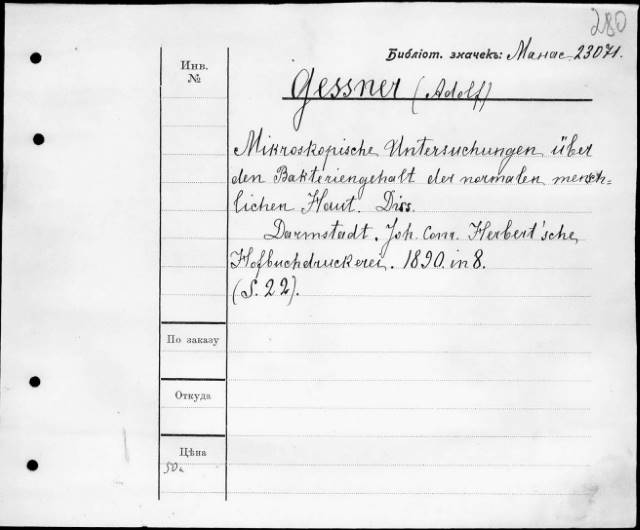 280
Библіот. значекъ: Манас-23071.
Инв.
№
Gessner (Adolf)
Mikroskopische Untersuchungen über
den Bakteriengehalt der normalen mensch-
lichen Haut. Diss.
Darmstadt. Joh. Conr. Herbert'sche
Hofbuchdruckerei. 1890. in 8.
(S. 22).
По заказу
Откуда
Цѣна